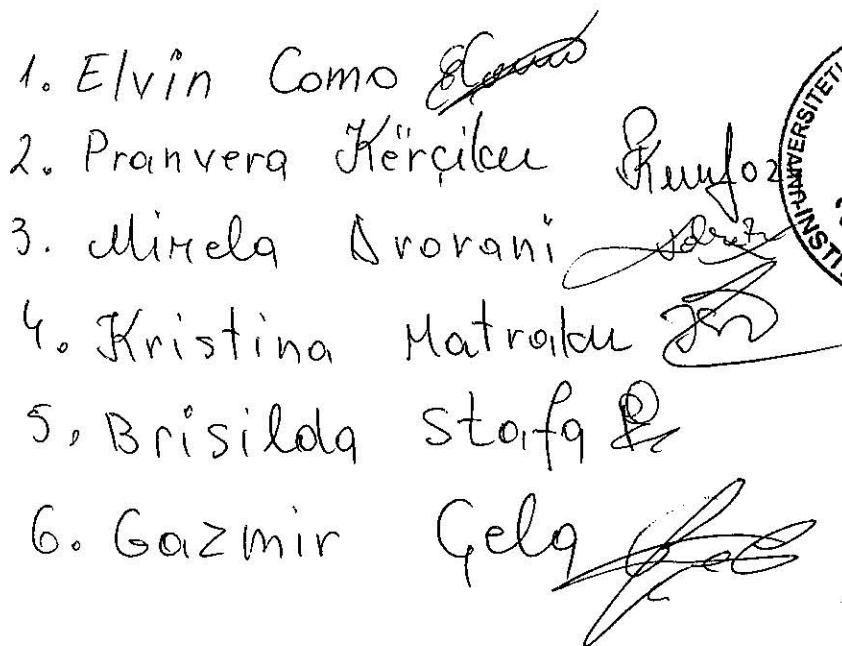 1. Elvin Como
2. Pranvera Kërçiku
3. Mirela Drorani
4. Kristina Matraku
5. Brisilda Stafa
6. Gazmir Çela
UNIVERSITETI